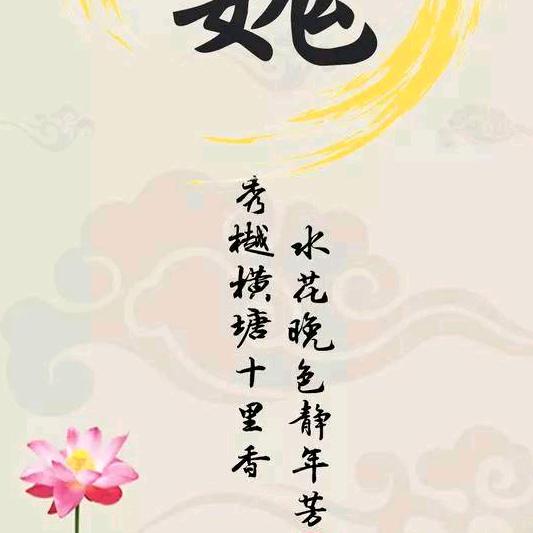 秀樾横塘十里香
水花晚色静年芳